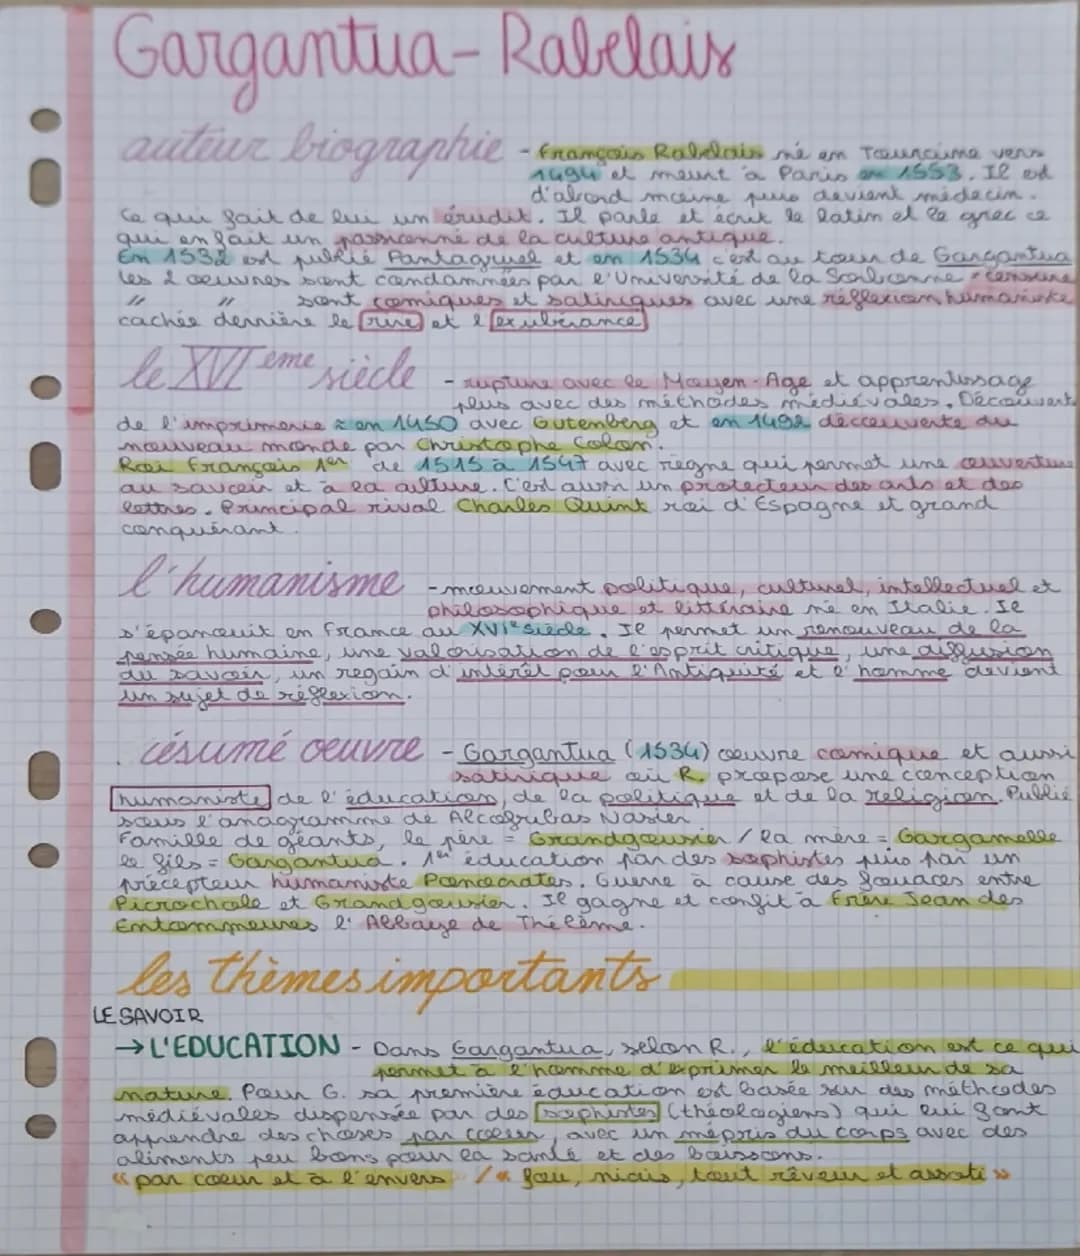 Gargantua - Rabelais
auteur biographie - François Rabelais né en Tourraine vers
1494 et meurt à Paris en 1553. Il est
d'abord moine puis devient médecin.
Ce qui fait de lui un érudit. Il parle et écrit le latin et le grec ce
qui en fait un passionné de la culture antique.
En 1532 est publié Pantagruel et en 1534 c'est au tour de Gargantua
les 2 oeuvres sont condamnées par l'Université de la Sorbonne = censure
" " sont comiques et satiriques avec une réflexion humaniste
cachée derrière le rire et l'exubérance
le XVIème siècle - rupture avec le Moyen-Age et apprentissage
plus avec des méthodes médiévales. Découvert
de l'imprimerie ≈ en 1450 avec Gutemberg et en 1492 découverte du
nouveau monde par Christophe Colon.
Roi François 1er de 1515 à 1547 avec règne qui permet une ouverture
au savoir et à la culture. C'est aussi un protecteur des arts et des
lettres. Principal rival Charles Quint roi d'Espagne et grand
conquérant.
l'humanisme - mouvement politique, culturel, intellectuel et
philosophique et littéraire né en Italie. Il
s'épanouit en France au XVIe siècle. Il permet un renouveau de la
pensée humaine, une valorisation de l'esprit critique, une diffusion
du savoir, un regain d'intérêt pour l'Antiquité et l'homme devient
un sujet de réflexion.
résumé oeuvre - Gargantua (1534) oeuvre comique et aussi
satirique où R. propose une conception
humaniste de l'éducation, de la politique et de la religion. Publié
sous l'anagramme de Alcofribas Nasier
Famille de géants, le père = Grandgousier / la mère = Gargamelle
le fils = Gargantua. 1er éducation par des sophistes puis par un
précepteur humaniste Ponocrates. Guerre à cause des fouaces entre
Picrochole et Grandgousier. Il gagne et confit à Frère Jean des
Entommeures l'Abbaye de Thélème.
les thèmes importants
LE SAVOIR
→ L'EDUCATION - Dans Gargantua, selon R., l'éducation est ce qui
permet à l'homme d'exprimer le meilleur de sa
nature. Pour G. sa première éducation est basée sur des méthodes
médiévales dispensée par des sophistes (théologiens) qui lui font
apprendre des choses par coeur, avec un mépris du corps avec des
aliments peu bons pour la santé et des boissons.
« par coeur et à l'envers / « fou, niais, tout rêveur et assoti »